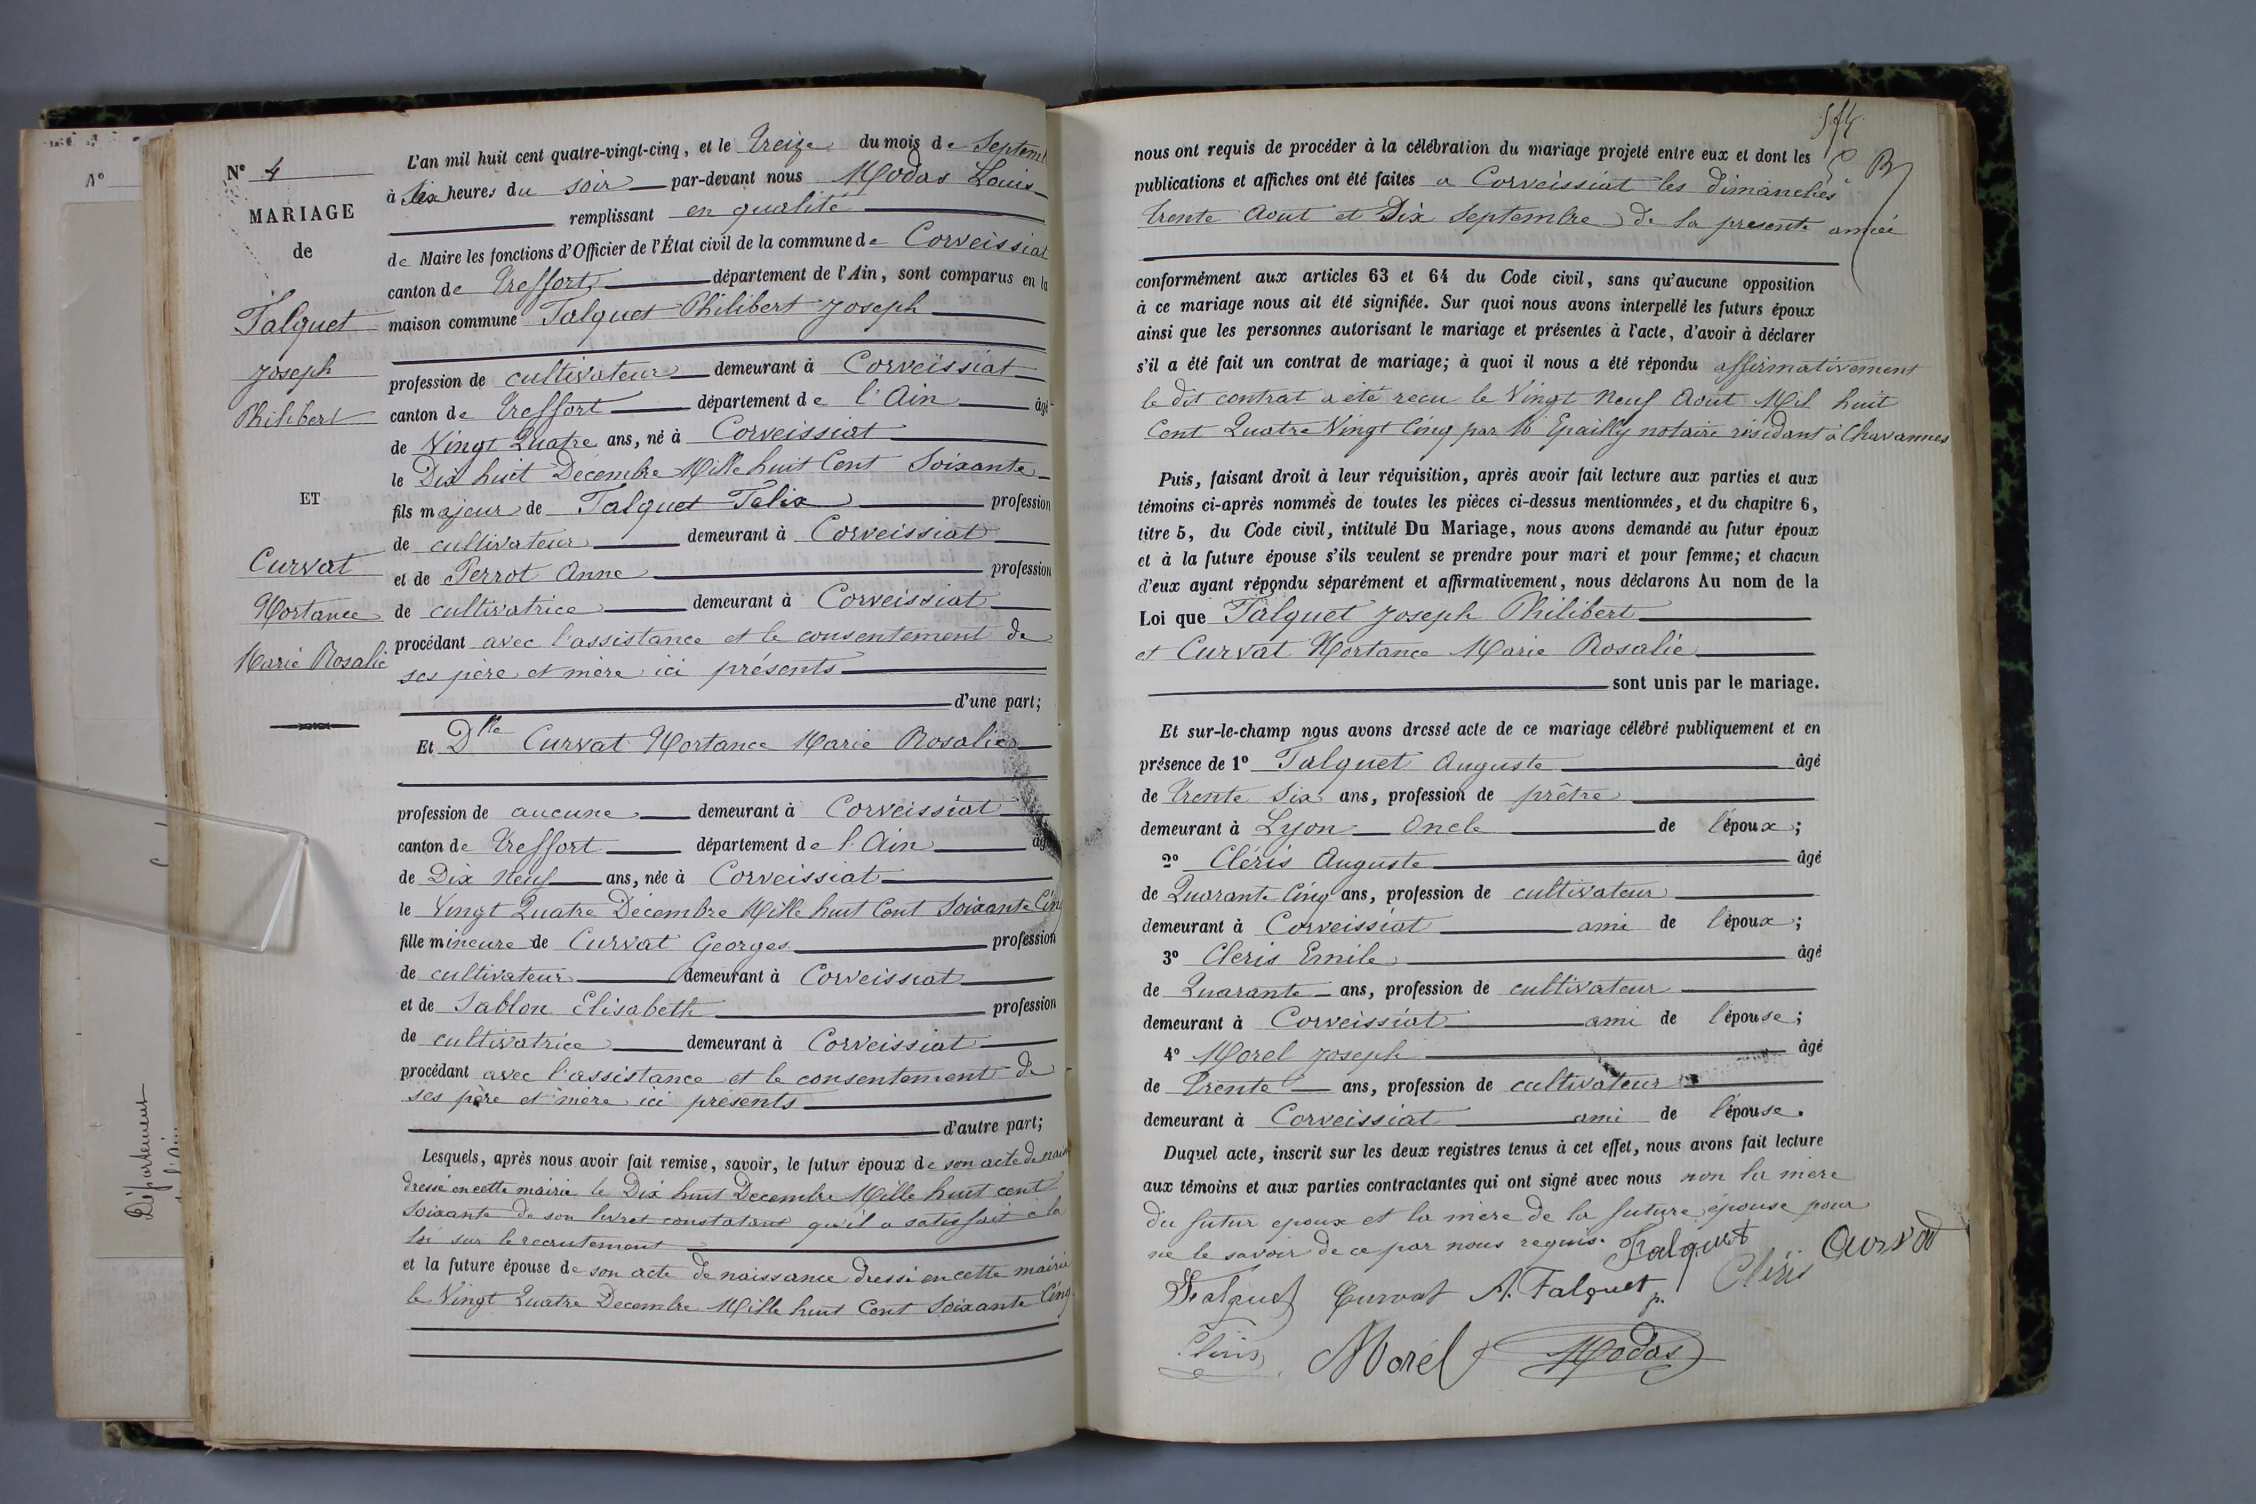 Nº 4
MARIAGE
de
Falquet
Joseph
Philibert
ET
Curvat
Hortance
Marie Rosalie
L'an mil huit cent quatre-vingt-cinq, et le Treize du mois de Septem
à Six heures du soir par-devant nous Modas Louis
remplissant en qualité
de Maire les fonctions d'Officier de l'État civil de la commune de Corveissiat
canton de Treffort département de l'Ain, sont comparus en la
maison commune Falquet Philibert Joseph
profession de cultivateur demeurant à Corveissiat
canton de Treffort département de l'Ain âgé
de Vingt Quatre ans, né à Corveissiat
le Dix huit Décembre Mille huit Cent Soixante
fils majeur de Falquet Felix profession
de cultivateur demeurant à Corveissiat
et de Perrot Anne profession
de cultivatrice demeurant à Corveissiat
procédant avec l'assistance et le consentement de
ses père et mère ici présents
d'une part;
Et Dlle Curvat Hortance Marie Rosalie
profession de aucune demeurant à Corveissiat
canton de Treffort département de l'Ain âgé
de Dix Neuf ans, née à Corveissiat
le Vingt Quatre Décembre Mille huit Cent Soixante Cinq
fille mineure de Curvat Georges profession
de cultivateur demeurant à Corveissiat
et de Sablon Elisabeth profession
de cultivatrice demeurant à Corveissiat
procédant avec l'assistance et le consentement de
ses père et mère ici presents
d'autre part;
Lesquels, après nous avoir fait remise, savoir, le futur époux de son acte de naiss
dressé en cette mairie le Dix huit Decembre Mille huit cent
Soixante de son livret constatant qu'il a satisfait à la
loi sur le recrutement
et la future épouse de son acte de naissance dressé en cette mairie
le Vingt Quatre Decembre Mille huit Cent Soixante Cinq
Département
nous ont requis de procéder à la célébration du mariage projeté entre eux et dont les
publications et affiches ont été faites a Corveissiat les dimanches
trente Aout et Dix Septembre de la presente année
conformément aux articles 63 et 64 du Code civil, sans qu'aucune opposition
à ce mariage nous ait été signifiée. Sur quoi nous avons interpellé les futurs époux
ainsi que les personnes autorisant le mariage et présentes à l'acte, d'avoir à déclarer
s'il a été fait un contrat de mariage; à quoi il nous a été répondu affirmativement
le dit contrat a été recu le Vingt Neuf Aout Mil huit
Cent Quatre Vingt Cinq par Me Epailly notaire résidant à Chavannes
Puis, faisant droit à leur réquisition, après avoir fait lecture aux parties et aux
témoins ci-après nommés de toutes les pièces ci-dessus mentionnées, et du chapitre 6,
titre 5, du Code civil, intitulé Du Mariage, nous avons demandé au futur époux
et à la future épouse s'ils veulent se prendre pour mari et pour femme; et chacun
d'eux ayant répondu séparément et affirmativement, nous déclarons Au nom de la
Loi que Falquet Joseph Philibert
et Curvat Hortance Marie Rosalie
sont unis par le mariage.
Et sur-le-champ nous avons dressé acte de ce mariage célébré publiquement et en
présence de 1º Falquet Auguste âgé
de Trente Six ans, profession de prêtre
demeurant à Lyon Oncle de l'époux;
2º Cléris Auguste âgé
de Quarante Cinq ans, profession de cultivateur
demeurant à Corveissiat ami de l'époux;
3º Cleris Emile âgé
de Quarante ans, profession de cultivateur
demeurant à Corveissiat ami de l'épouse;
4º Morel Joseph âgé
de Trente ans, profession de cultivateur
demeurant à Corveissiat ami de l'épouse.
Duquel acte, inscrit sur les deux registres tenus à cet effet, nous avons fait lecture
aux témoins et aux parties contractantes qui ont signé avec nous non la mere
du futur epoux et la mere de la future épouse pour
ne le savoir de ce par nous requis. Falquet
Cléris Curvat
Falquet Curvat A. Falquet p.
Cléris Morel Modas